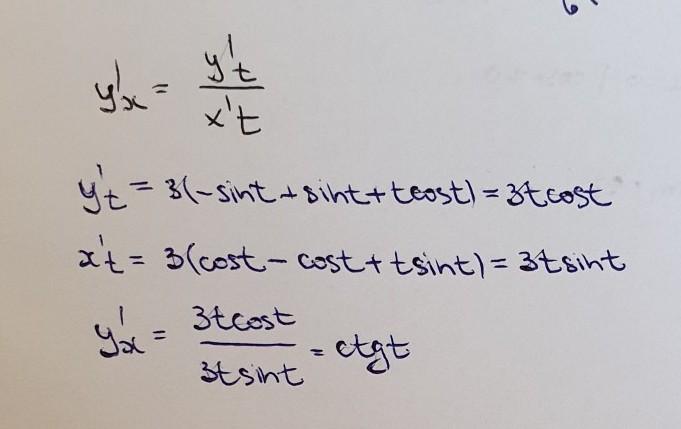 y'x = y't / x't
y't = 3(-sint + sint + tcost) = 3tcost
x't = 3(cost - cost + tsint) = 3tsint
y'x = 3tcost / 3tsint = ctgt